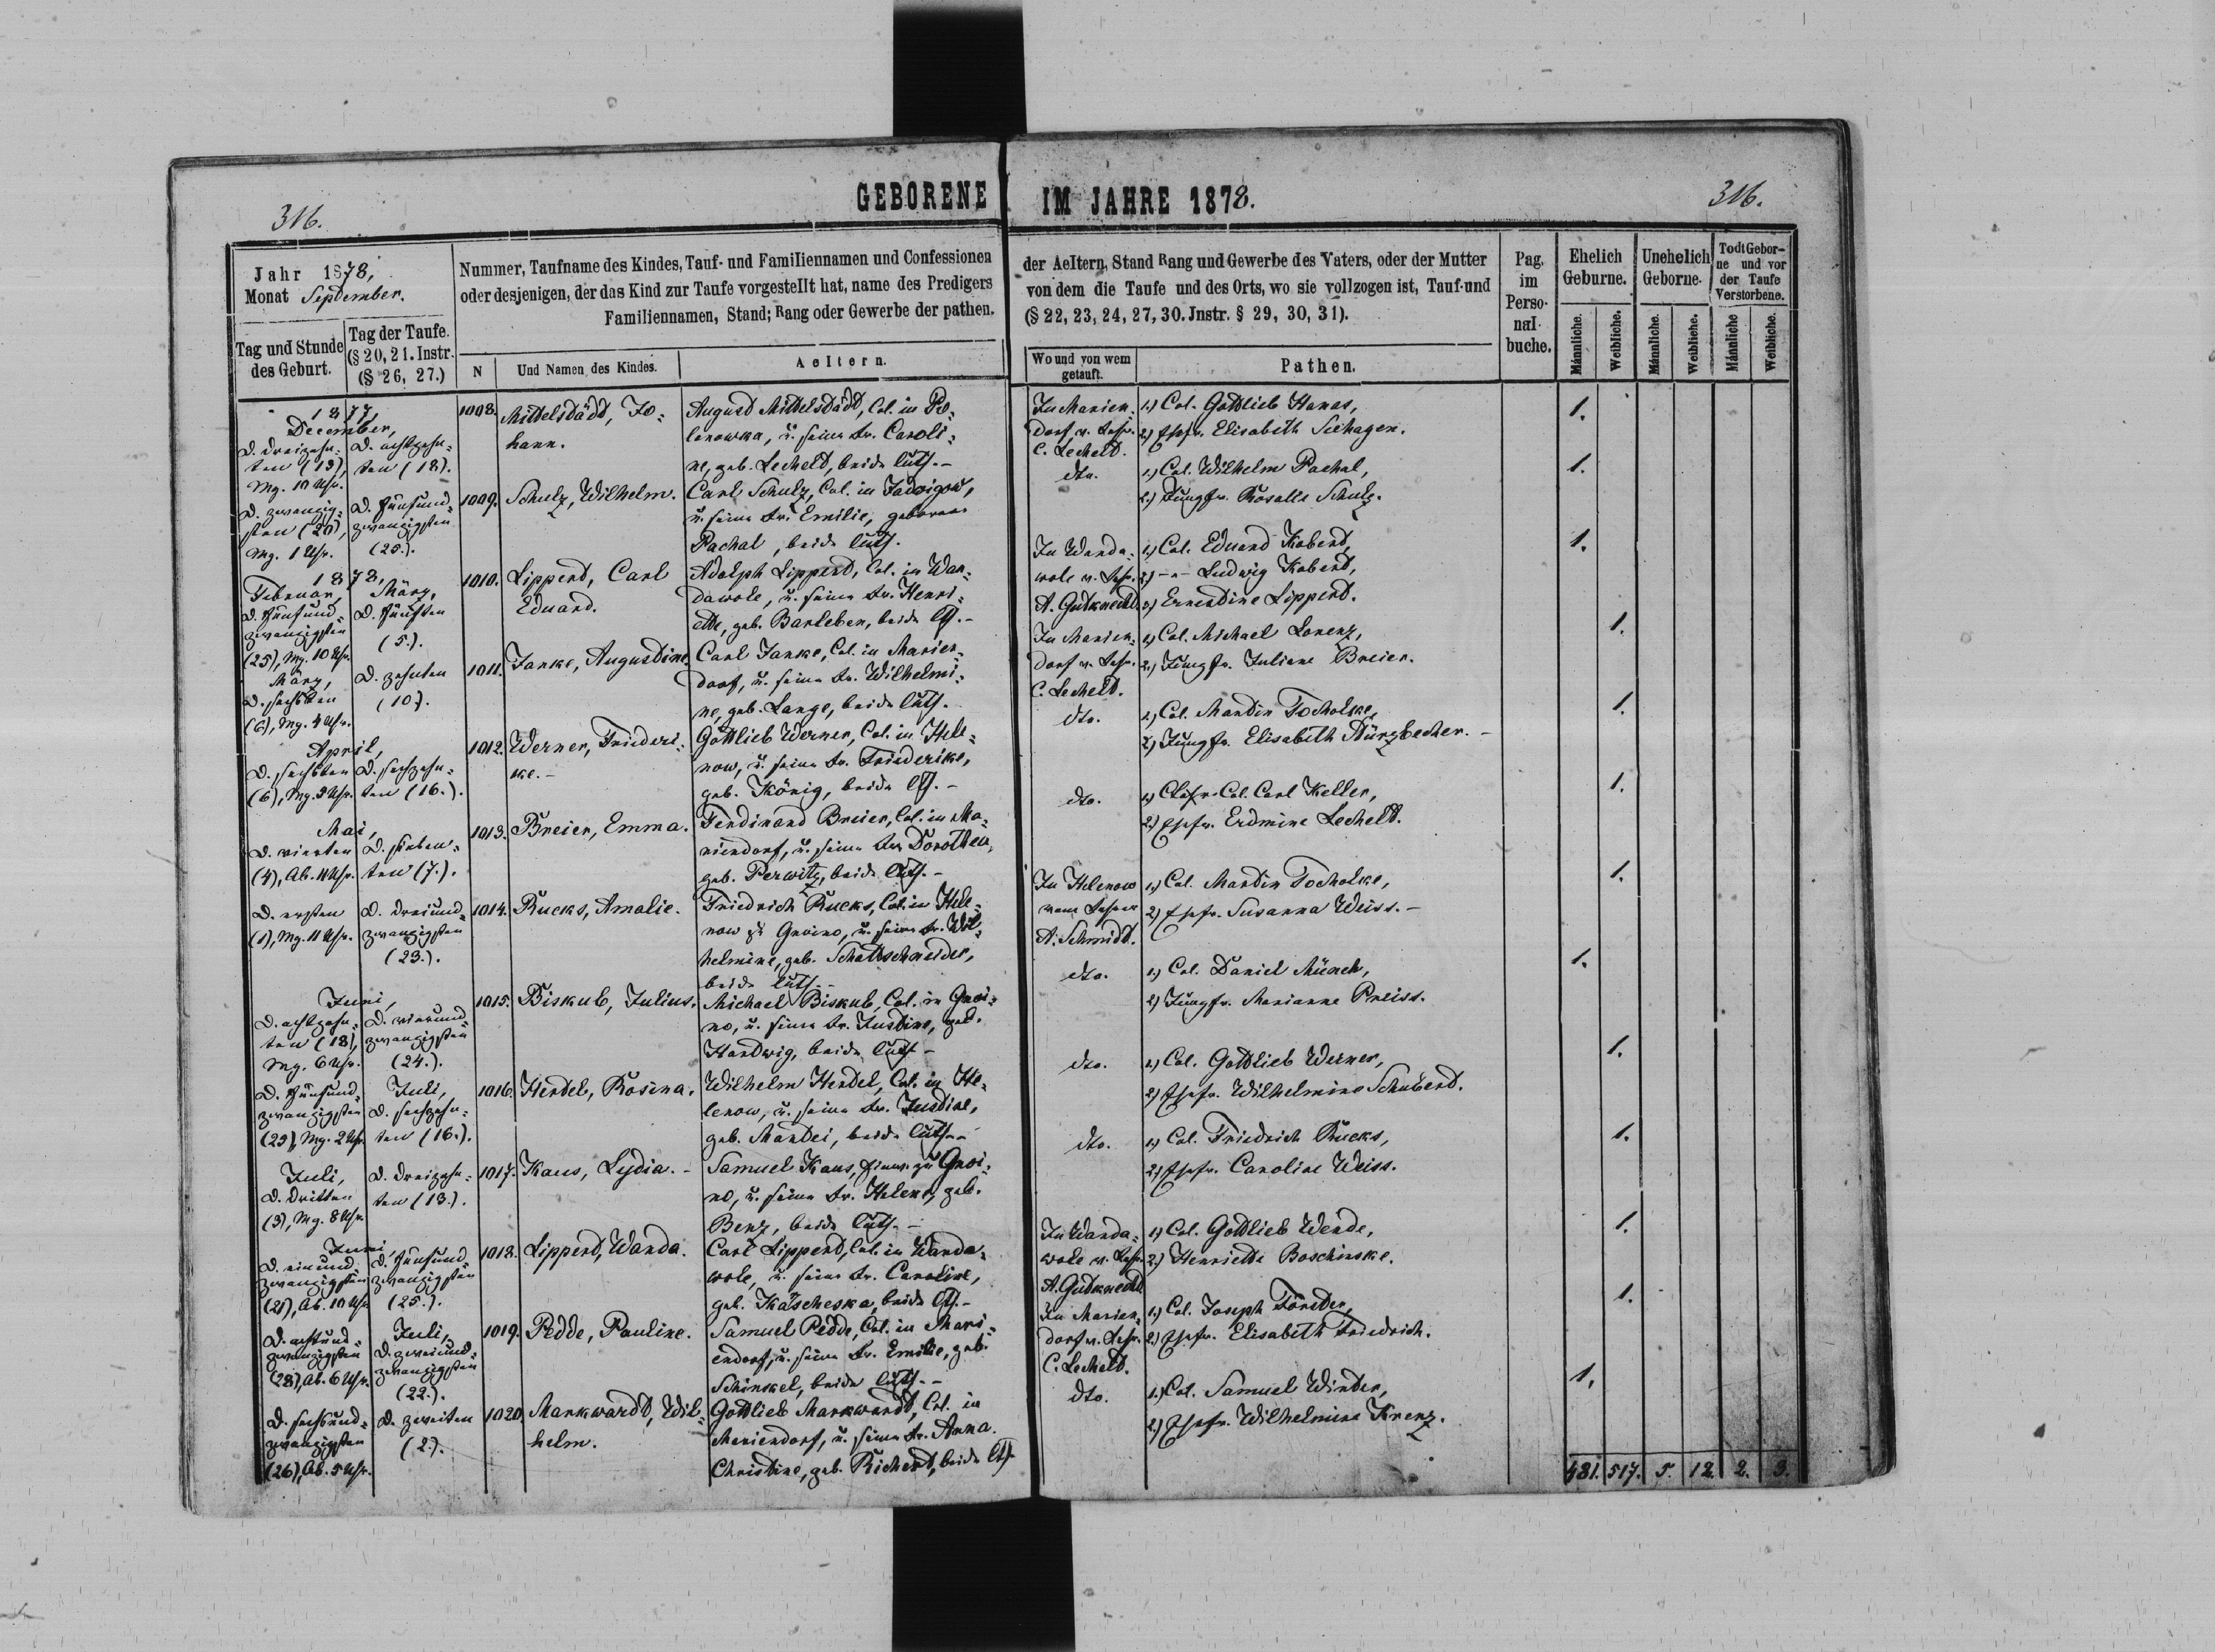 316.
GEBORENE IM JAHRE 1878.
316.
Jahr 1878,
Monat September.
Tag und Stunde des Geburt.
Tag der Taufe.
(§ 20, 21. Instr.
(§ 26, 27.)
Nummer, Taufname des Kindes, Tauf- und Familiennamen und Confessionen
oder desjenigen, der das Kind zur Taufe vorgestellt hat, name des Predigers
Familiennamen, Stand; Rang oder Gewerbe der pathen.
N
Und Namen des Kindes.
Aeltern.
der Aeltern, Stand Rang und Gewerbe des Vaters, oder der Mutter
von dem die Taufe und des Orts, wo sie vollzogen ist, Tauf-und
(§ 22, 23, 24, 27, 30. Jnstr. § 29, 30, 31).
Wo und von wem
getauft.
Pathen.
Pag.
im
Perso-
nal-
buche.
Ehelich
Geburne.
Unehelich
Geborne.
Todt Gebor-
ne und vor
der Taufe
Verstorbene.
Männliche.
Weibliche.
Männliche.
Weibliche.
Männliche
Weibliche.
1877,
December,
D. dreizehn-
ten (13),
Mg. 10 Uhr.
D. achtzehn-
ten (18).
1008.
Mittelstädt, Jo-
hann.
August Mittelstädt, Col. in Po-
lenowka, u. seine Fr. Caroli-
ne, geb. Lecheld, beide luth. -
In Marien-
dorf v. Lehr.
C. Lecheld.
1.) Col. Gottlieb Hanas,
2.) Ehefr. Elisabeth Seehagen.
1.
D. zwanzig-
sten (20),
Mg. 1 Uhr.
D. fünfund-
zwanzigsten
(25.).
1009.
Schulz, Wilhelm.
Carl Schulz, Col. in Jadwigow,
u. seine Fr. Emilie, geborene
Pachal, beide luth.
dto.
1.) Col. Wilhelm Pachal,
2.) Jungfr. Rosalie Schulz.
1.
1878,
Februar,
D. fünfund-
zwanzigsten
(25), Mg. 10 Uhr.
März,
D. fünften
(5.).
1010.
Lippert, Carl
Eduard.
Adolph Lippert, Col. in Wan-
dawole, u. seine Fr. Henri-
ette, geb. Barleben, beide lth. -
In Wanda-
wole v. Lehr.
A. Gutknecht.
1.) Col. Eduard Kobert,
2.) -"- Ludwig Kobert,
3.) Ernestine Lippert.
1.
März,
D. sechsten
(6), Mg. 4 Uhr.
D. zehnten
(10).
1011.
Janke, Augustine.
Carl Janke, Col. in Marien-
dorf, u. seine Fr. Wilhelmi-
ne, geb. Lange, beide luth.
In Marien-
dorf v. Lehr.
C. Lecheld.
1.) Col. Michael Lorenz,
2.) Jungfr. Juliane Breier.
1.
April,
D. sechsten
(6), Mg. 3 Uhr.
D. sechzehn-
ten (16.).
1012.
Werner, Friederi-
ke. -
Gottlieb Werner, Col. in Hele-
now, u. seine Fr. Friederike,
geb. König, beide lth. -
dto.
1.) Col. Martin Tocholke,
2.) Jungfr. Elisabeth Stürzbecher. -
1.
Mai,
D. vierten
(4), Ab. 11 Uhr.
D. sieben-
ten (7.).
1013.
Breier, Emma.
Ferdinand Breier, Col. in Ma-
riendorf, u. seine Fr. Dorothea,
geb. Perwitz, beide luth. -
dto.
1.) Col. Carl Keller,
2.) Ehefr. Erdmine Lecheld.
1.
D. ersten
(1), Mg. 11 Uhr.
D. dreiund-
zwanzigsten
(23.).
1014.
Rucks, Amalie.
Friedrich Rucks, Col. in Hele-
now zu Gnoino, u. seine Fr. Wil-
helmine, geb. Schattschneider,
beide luth. -
In Helenow
vom Lehrer
A. Schmidt.
1.) Col. Martin Tocholke,
2.) Ehefr. Susanna Weiss. -
1.
Juni,
D. achtzehn-
ten (18),
Mg. 6 Uhr.
D. vierund-
zwanzigsten
(24.).
1015.
Biskub, Julius.
Michael Biskub, Col. in Gnoi-
no, u. seine Fr. Justine, geb.
Hartwig, beide luth -
dto.
1.) Col. Daniel Münch,
2.) Jungfr. Marianne Preiss.
1.
D. fünfund-
zwanzigsten
(25), Mg. 2 Uhr
Juli,
D. sechzehn-
ten (16.).
1016.
Hertel, Rosina.
Wilhelm Hertel, Col. in He-
lenow, u. seine Fr. Justine,
geb. Mantei, beide luth. -
dto.
1.) Col. Gottlieb Werner,
2.) Ehefr. Wilhelmine Schubert.
1.
Juli,
D. dritten
(3), Mg. 8 Uhr.
D. dreizehn-
ten (13.).
1017.
Kaus, Lydia. -
Samuel Kaus, Einw. zu Gnoi-
no, u. seine Fr. Helene, geb.
Benz, beide luth. -
dto.
1.) Col. Friedrich Rucks,
2.) Ehefr. Caroline Weiss.
1.
Juni,
D. einund-
zwanzigsten
(21), Ab. 10 Uhr
D. fünfund-
zwanzigsten
(25.).
1018.
Lippert, Wanda.
Carl Lippert, Col. in Wanda-
wole, u. seine Fr. Caroline,
geb. Kascheska, beide lth. -
In Wanda-
wole v. Lehr.
A. Gutknecht
1.) Col. Gottlieb Wende,
2.) Henriette Boschinske.
1.
D. achtund-
zwanzigsten
(28), Ab. 6 Uhr.
Juli,
D. zweiund-
zwanzigsten
(22.).
1019.
Pedde, Pauline.
Samuel Pedde, Col. in Mari-
endorf, u. seine Fr. Emilie, geb.
Schinkel, beide luth. -
In Marien-
dorf v. Lehr.
C. Lecheld.
1.) Col. Joseph Förster,
2.) Ehefr. Elisabeth Friedrich.
1.
D. sechsund-
zwanzigsten
(26), Ab. 5 Uhr.
D. zweiten
(2.).
1020.
Markwardt, Wil-
helm.
Gottlieb Markwardt, Col. in
Mariendorf, u. seine Fr. Anna
Christine, geb. Richert, beide lth
dto.
1.) Col. Samuel Winter,
2.) Ehefr. Wilhelmine Krenz.
1.
481. 517. 5. 12. 2. 3.